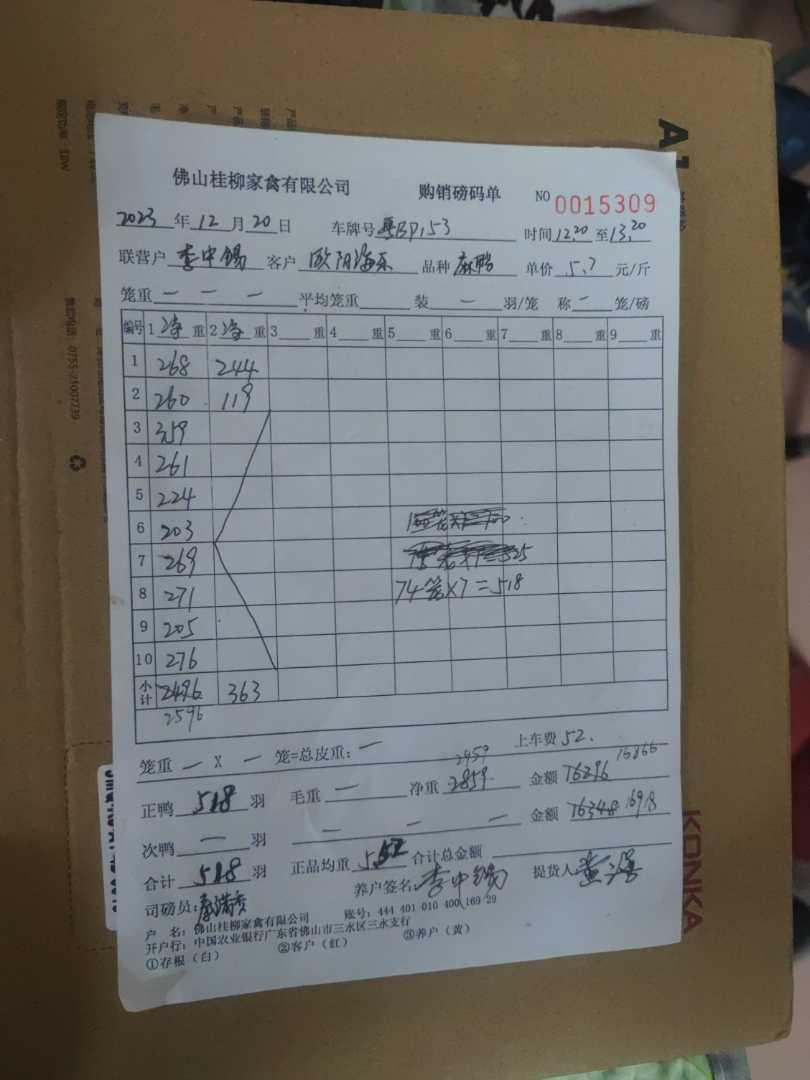 佛山桂柳家禽有限公司 购销磅码单 NO 0015309
2023 年 12 月 20 日 车牌号 粤BP153 时间 12.20 至 13.20
联营户 李中锡 客户 欧阳海 品种 麻鸭 单价 5.7 元/斤
笼重 — — — 平均笼重 装 — 羽/笼 称 — 笼/磅
编号 1 净 重 2 净 重 3 重 4 重 5 重 6 重 7 重 8 重 9 重
1 268 244
2 260 119
3 359
4 261
5 224
6 203
7 269
74笼×7=518
8 271
9 205
10 276
小计 2496 363
2596
笼重 — X — 笼=总皮重: — 上车费 52.
2959 16866
正鸭 518 羽 毛重 — 净重 2859 金额 16296
次鸭 — 羽 — — — 金额 16348 16918
合计 518 羽 正品均重 5.52 合计总金额
司磅员: 养户签名: 李中锡 提货人
户 名: 佛山桂柳家禽有限公司 账号: 444 401 010 400 169 29
开户行: 中国农业银行广东省佛山市三水区三水支行
①存根（白） ②客户（红） ③养户（黄）
KONKA
0755-21007739